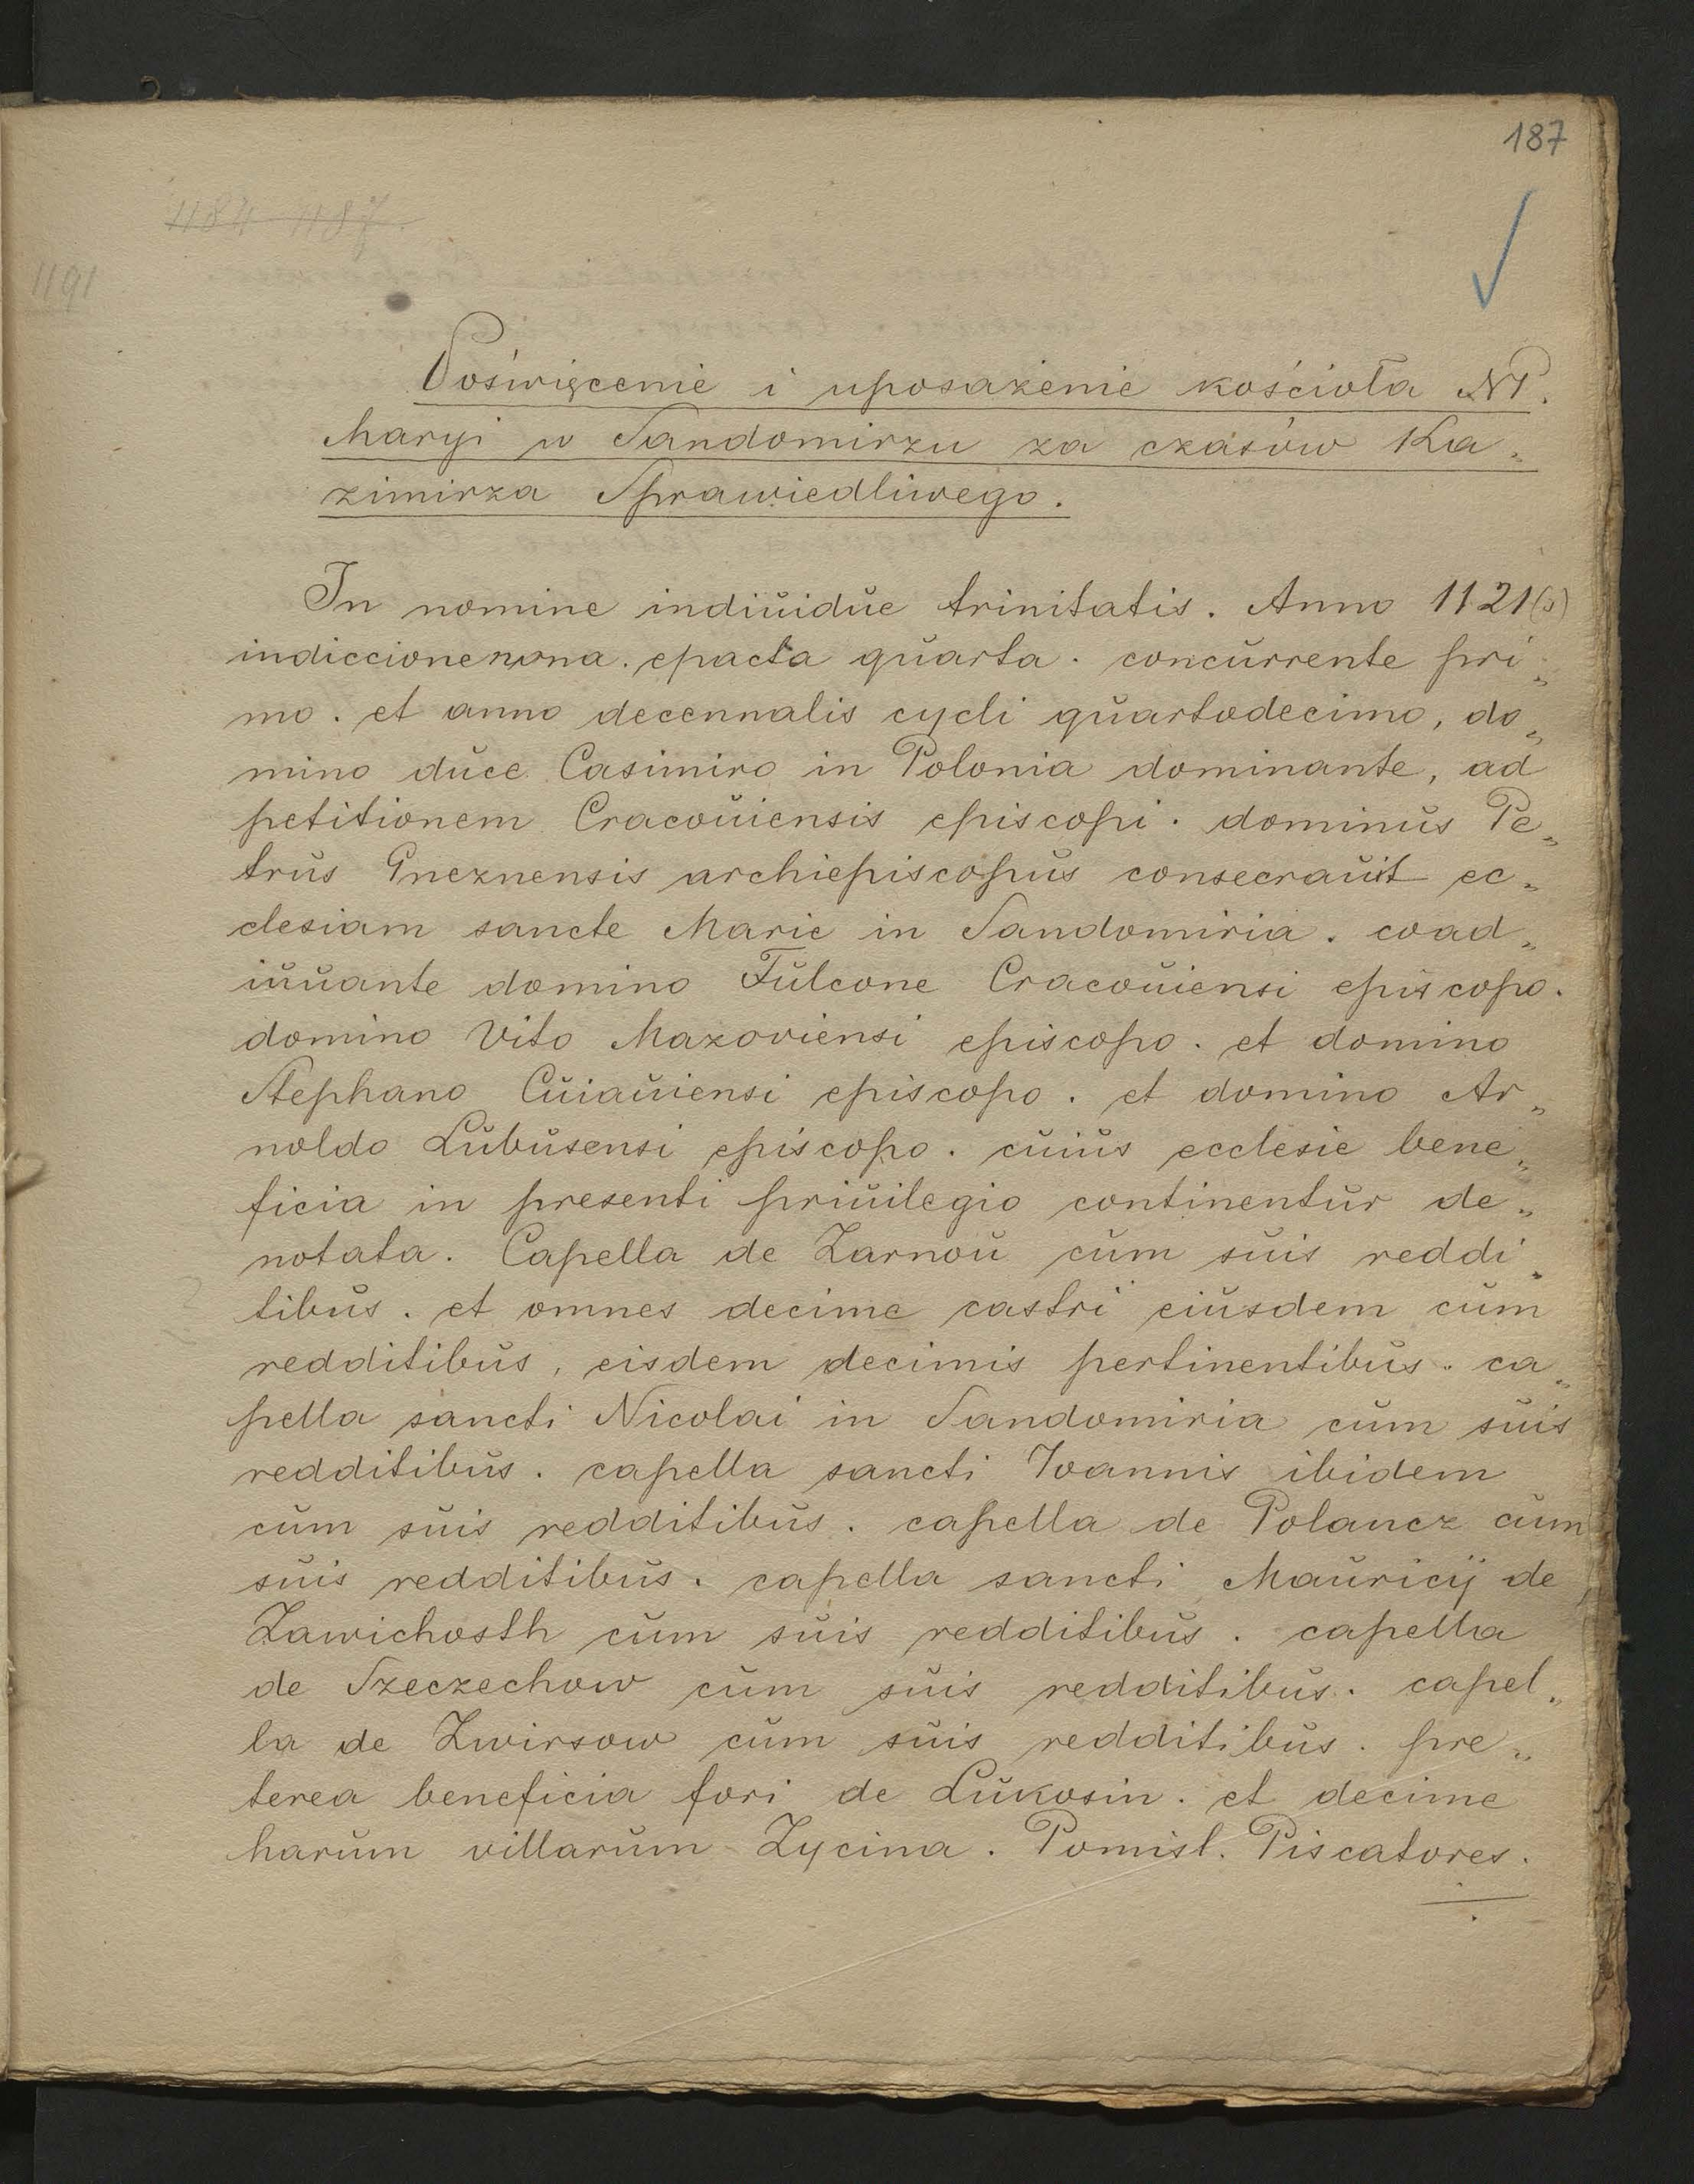 187
1184-1187.
1191
Poświęcenie i uposażenie kościoła NP.
Maryi w Sandomirzu za czasów Ka„
zimirza Sprawiedliwego.
In nomine indiuidue trinitatis. Anno 1121(s)
indiccione nona. epacta quarta. concurrente pri„
mo. et anno decennalis cycli quartodecimo, do„
mino duce Casimiro in Polonia dominante, ad
petitionem Cracouiensis episcopi. dominus Pe„
trus Gneznensis archiepiscopus consecrauit ec„
clesiam sancte Marie in Sandomiria. coad„
iuuante domino Fulcone Cracouiensi episcopo.
domino Vito Mazoviensi episcopo. et domino
Stephano Cuiauiensi episcopo. et domino Ar„
noldo Lubusensi episcopo. cuius ecclesie bene„
ficia in presenti priuilegio continentur de„
notata. Capella de Zarnou cum suis reddi„
tibus. et omnes decime castri eiusdem cum
redditibus, eisdem decimis pertinentibus. ca„
pella sancti Nicolai in Sandomiria cum suis
redditibus. capella sancti Ioannis ibidem
cum suis redditibus. capella de Polancz cum
suis redditibus. capella sancti Mauricij de
Zawichosth cum suis redditibus. capella
de Szeczechow cum suis redditibus. capel„
la de Zwirsow cum suis redditibus. pre„
terea beneficia fori de Lukosin. et decime
harum villarum Zycina. Pomisl. Piscatores.